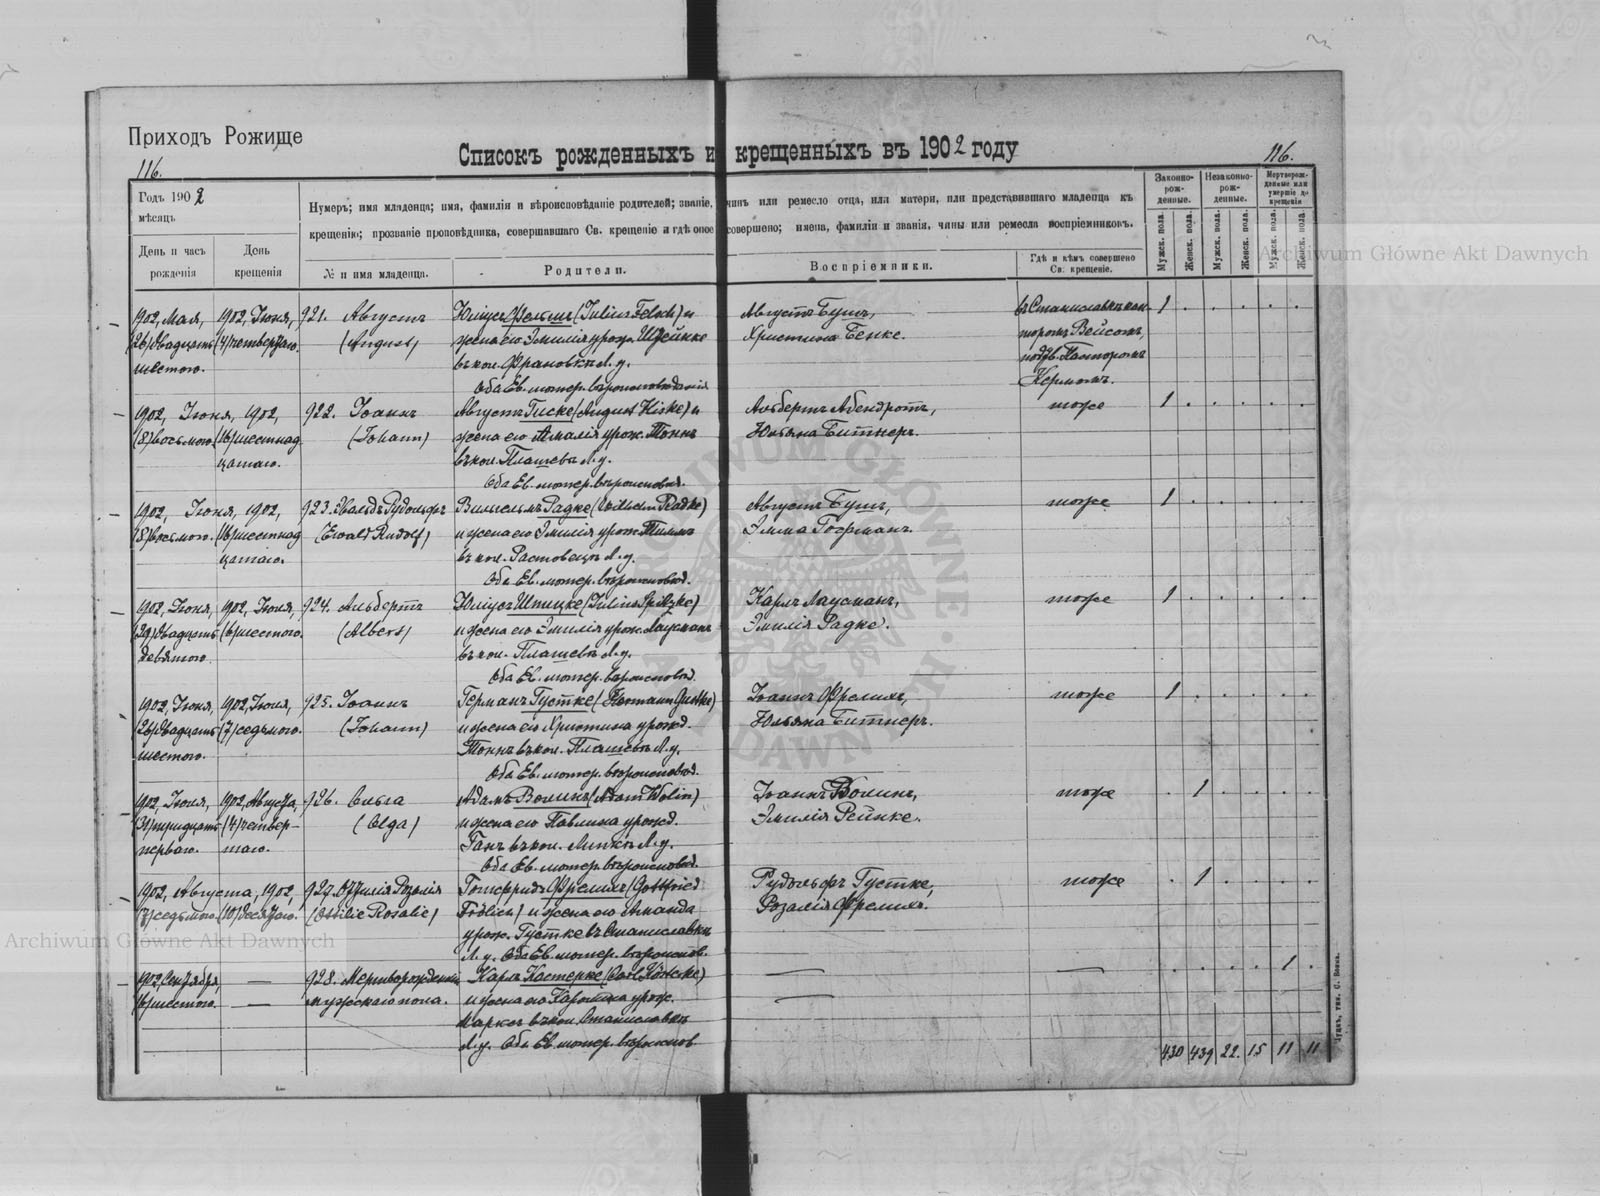 Приходъ Рожище
Списокъ рожденныхъ и крещенныхъ въ 1902 году
116.
116.
Годъ 1902
мѣсяцъ
День и часъ
рожденія
День
крещенія
Нумеръ; имя младенца; имя, фамилія и вѣроисповѣданіе родителей; званіе, чинъ или ремесло отца, или матери, или представившаго младенца къ
крещенію; прозваніе проповѣдника, совершавшаго Св. крещеніе и гдѣ оное совершено; имена, фамиліи и званія, чины или ремесла воспріемниковъ.
№ и имя младенца.
Родители.
Воспріемники.
Гдѣ и кѣмъ совершено
Св. крещеніе.
Законно-
рож-
денные.
Незаконно-
рож-
денные.
Мертворож-
денные или
умершіе до
крещенія
Мужск. пола.
Женск. пола.
Мужск. пола.
Женск. пола.
Мужск. пола.
Женск. пола.
1902, Мая, 1902, Іюня, 921. Августъ Юліусъ Фельшъ (Julius Felsch) и Августъ Бушъ, въ Станиславкѣ кан- 1
(26) двадцать (4) четвертаго. (August) жена его Эмилія урожд. Штейнке Христина Бенке. торомъ Вейсомъ,
шестого. въ кол. Френовкѣ Л. у. подтв. Пасторомъ
Оба Ев. лютер. вѣроисповѣданія Кермомъ.
1902, Іюня, 1902, 922. Іоаннъ Августъ Гиске (August Hiske) и Альбертъ Абендротъ, тоже 1
(8) восьмого. (16) шестнад (Johann) жена его Амалія урож. Тоннъ Юльяна Битнеръ.
цатаго. въ кол. Плашевъ Л. у.
Оба Ев. лютер. вѣроисповѣд.
1902, Іюня, 1902, 923. Эвальдъ Рудольфъ Вильгельмъ Радке (Wilhelm Radke) Августъ Бушъ, тоже 1
(8) восьмого. (16) шестнад (Ewald Rudolf) и жена его Эмилія урож. Тиммъ Эмма Гофманъ.
цатаго. въ кол. Растовецъ Л. у.
Оба Ев. лютер. вѣроисповѣд.
1902, Іюня, 1902, Іюля, 924. Альбертъ Юліусъ Шпицке (Julius Spitzke) Карлъ Лаусманъ, тоже 1
(29) двадцать (6) шестого. (Albert) и жена его Эмилія урож. Лаусманъ Эмилія Радке.
девятого. въ кол. Плашевъ Л. у.
Оба Ев. лютер. вѣроисповѣд.
1902, Іюня, 1902, Іюля, 925. Іоаннъ Германъ Густке (Hermann Gustke) Іоаннъ Фрелихъ, тоже 1
(26) двадцать (7) седьмого. (Johann) и жена его Христина урожд. Юльяна Битнеръ.
шестого. Тоннъ въ кол. Плашевъ Л. у.
Оба Ев. лютер. вѣроисповѣд.
1902, Іюля, 1902, Августа, 926. Ольга Адамъ Волинъ (Adam Wolin) Іоаннъ Волинъ, тоже 1
(31) тридцать (4) четвер- (Olga) и жена его Павлина урожд. Эмилія Рейнке.
перваго. таго. Ганъ въ кол. Липкѣ Л. у.
Оба Ев. лютер. вѣроисповѣд.
1902, Августа, 1902, 927. Оттилія Розалія Готфридъ Фрелихъ (Gottfried Рудольфъ Густке, тоже 1
(7) седьмого. (10) десятаго. (Ottilie Rosalie) Frölich) и жена его Аманда Розалія Фрелихъ.
урож. Густке въ Станиславкѣ
Л. у. Оба Ев. лютер. вѣроисповѣд.
1902, Сентября, — 928. Мертворожденный Карлъ Кестерке (Carl Kösterke) — — 1
(6) шестого. — мужскаго пола. и жена его Каролина урож. —
Марксъ въ кол. Станиславкѣ
Л. у. Оба Ев. лютер. вѣроисповѣд
430 439 22. 15 11 11
Луцкъ, тип. С. Бонка.
Archiwum Główne Akt Dawnych
Archiwum Główne Akt Dawnych
ARCHIWUM GŁÓWNE AKT DAWNYCH